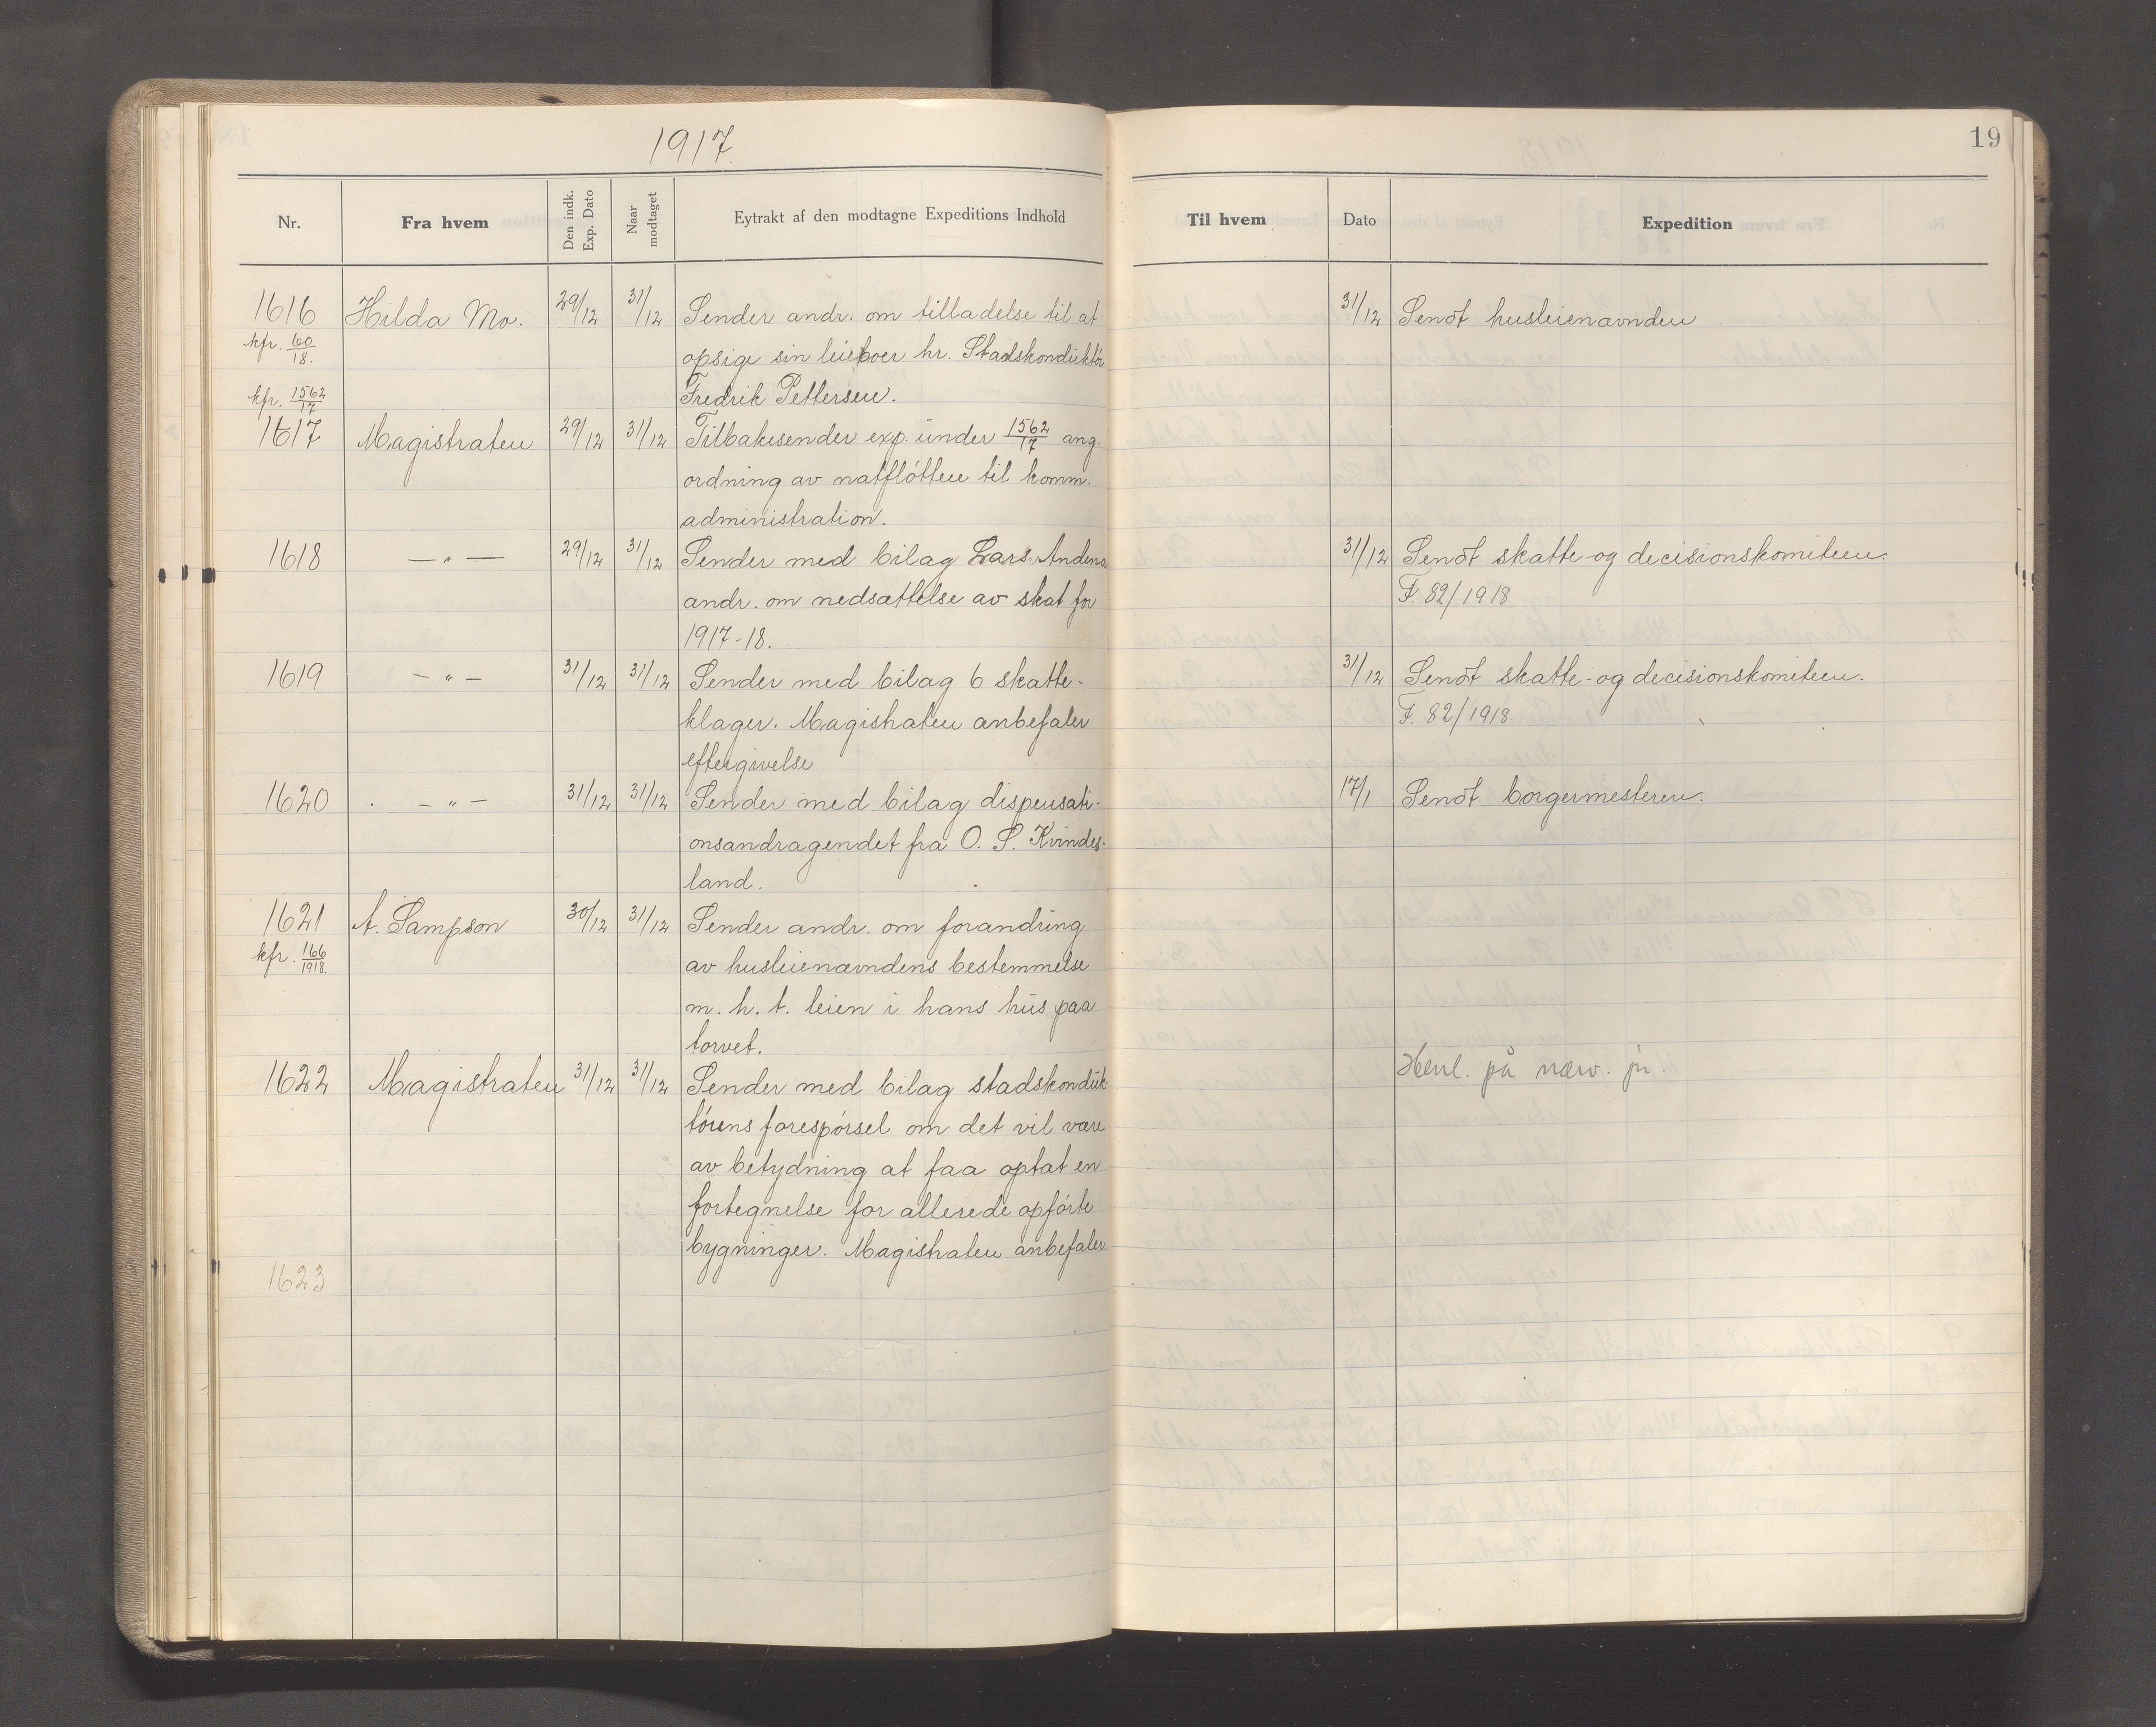 1917.
19
Nr. Fra hvem Den indk. Exp. Dato Naar modtaget Eytrakt af den modtagne Expeditions Indhold Til hvem Dato Expedition
1616 Hilda Mo. 29/12 31/12 Sender andr. om tilladelse til at 31/12 Sendt husleienævnden
kfr. 60/18. opsige sin leieboer hr. Stadskonduktør
kfr. 1562/17 Fredrik Pettersen.
1617 Magistraten 29/12 31/12 Tilbakesender exp. under 1562/17 ang.
ordning av natfløtten til komm.
administration.
1618 — " — 29/12 31/12 Sender med bilag Lars Andena 31/12 Sendt skatte-og decisionskomiteen.
andr. om nedsættelse av skat for F. 82/1918
1917-18.
1619 — " — 31/12 31/12 Sender med bilag 6 skatte- 31/12 Sendt skatte-og decisionskomiteen.
klager. Magistraten anbefaler F. 82/1918.
eftergivelse
1620 — " — 31/12 31/12 Sender med bilag dispensati- 17/1 Sendt borgermesteren.
onsandragendet fra O. S. Kvindes-
land.
1621 A. Sampson 30/12 31/12 Sender andr. om forandring
kfr. 166/1918. av husleienævndens bestemmelse
m. h. t. leien i hans hus paa
torvet.
1622 Magistraten 31/12 31/12 Sender med bilag stadskonduk- Henl. på nærv. jr.
tørens forespørsel om det vil være
av betydning at faa optat en
fortegnelse for allerede opførte
bygninger. Magistraten anbefaler.
1623